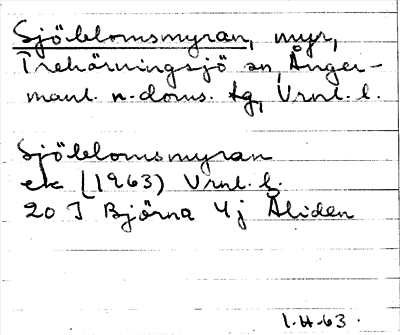 Sjöblomsmyran, myr,
Trehörningsjö sn, Ånger-
manl. n. doms. tg, Vrnl. l.
Sjöblomsmyran
ek (1963) Vrnl. l.
20 I Björna 4j Åliden
1.H.63.